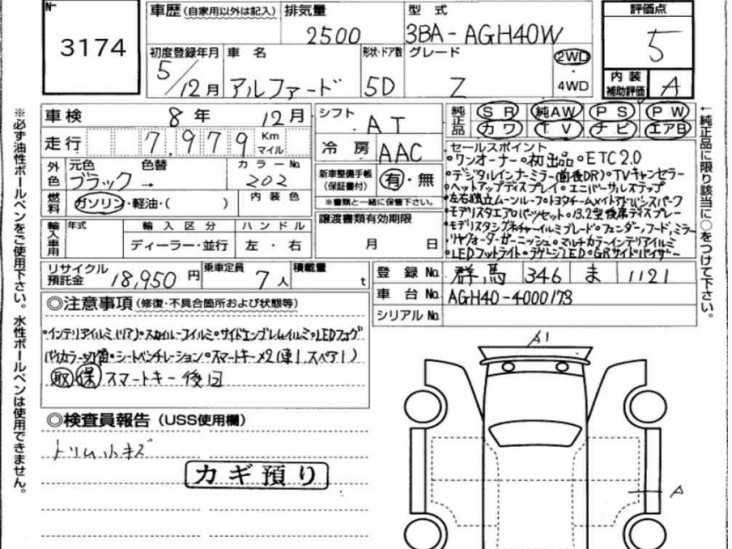 No.
3174
車歴 (自家用以外は記入)
排気量
2500
型式
3BA-AGH40W
評価点
5
内装補助評価
A
初度登録年月
5/12月
車名
アルファード
形状・ドア数
5D
グレード
Z
2WD・4WD
車検 8年 12月
走行 7,979 Km マイル
シフト
AT
冷房
AAC
純正品
SR 純AW PS PW
カワ TV ナビ エアB
外色
元色 色替
ブラック →
カラーNo.
202
燃料
ガソリン・軽油・( )
内装色
新車整備手帳(保証書付) 有・無
※書類と一緒に保管下さい。
セールスポイント
・ワンオーナー・初出品・ETC2.0
・デジタルインナーミラー(前後DR)・TVキャンセラー
・ヘッドアップディスプレイ・ユニバーサルステップ
・左右独立ムーンルーフ・トヨタチームメイトアドバンスパーク
・モデリスタエアロパーツセット・13.2型後席ディスプレー
・モデリスタシグネチャーイルミブレード・フェンダー,フード,ミラー
・リヤクォーターガーニッシュ・マルチカラーインテリアイルミ
・LEDフットライト・ラゲージLED・GRサイドバイザー
輸入車用
年式
輸入区分
ディーラー・並行
ハンドル
左・右
譲渡書類有効期限
月 日
リサイクル預託金 18,950円
乗車定員 7人
積載量 t
登録No. 群馬 346 ま 1121
車台No. AGH40-4000178
シリアルNo.
◎注意事項 (修復・不具合箇所および状態等)
・インテリアイルミ(リア)・スカイルーフイルミ・サイドエンブレムイルミ・LEDフォグ
・シートベンチレーション・スマートキー×2(車1,スペア1)
取 保 スマートキー後日
◎検査員報告 (USS使用欄)
トリム小キズ
カギ預り
A1
A
※必ず油性ボールペンをご使用下さい。水性ボールペンは使用できません。
←純正品に限り該当に○をつけて下さい。